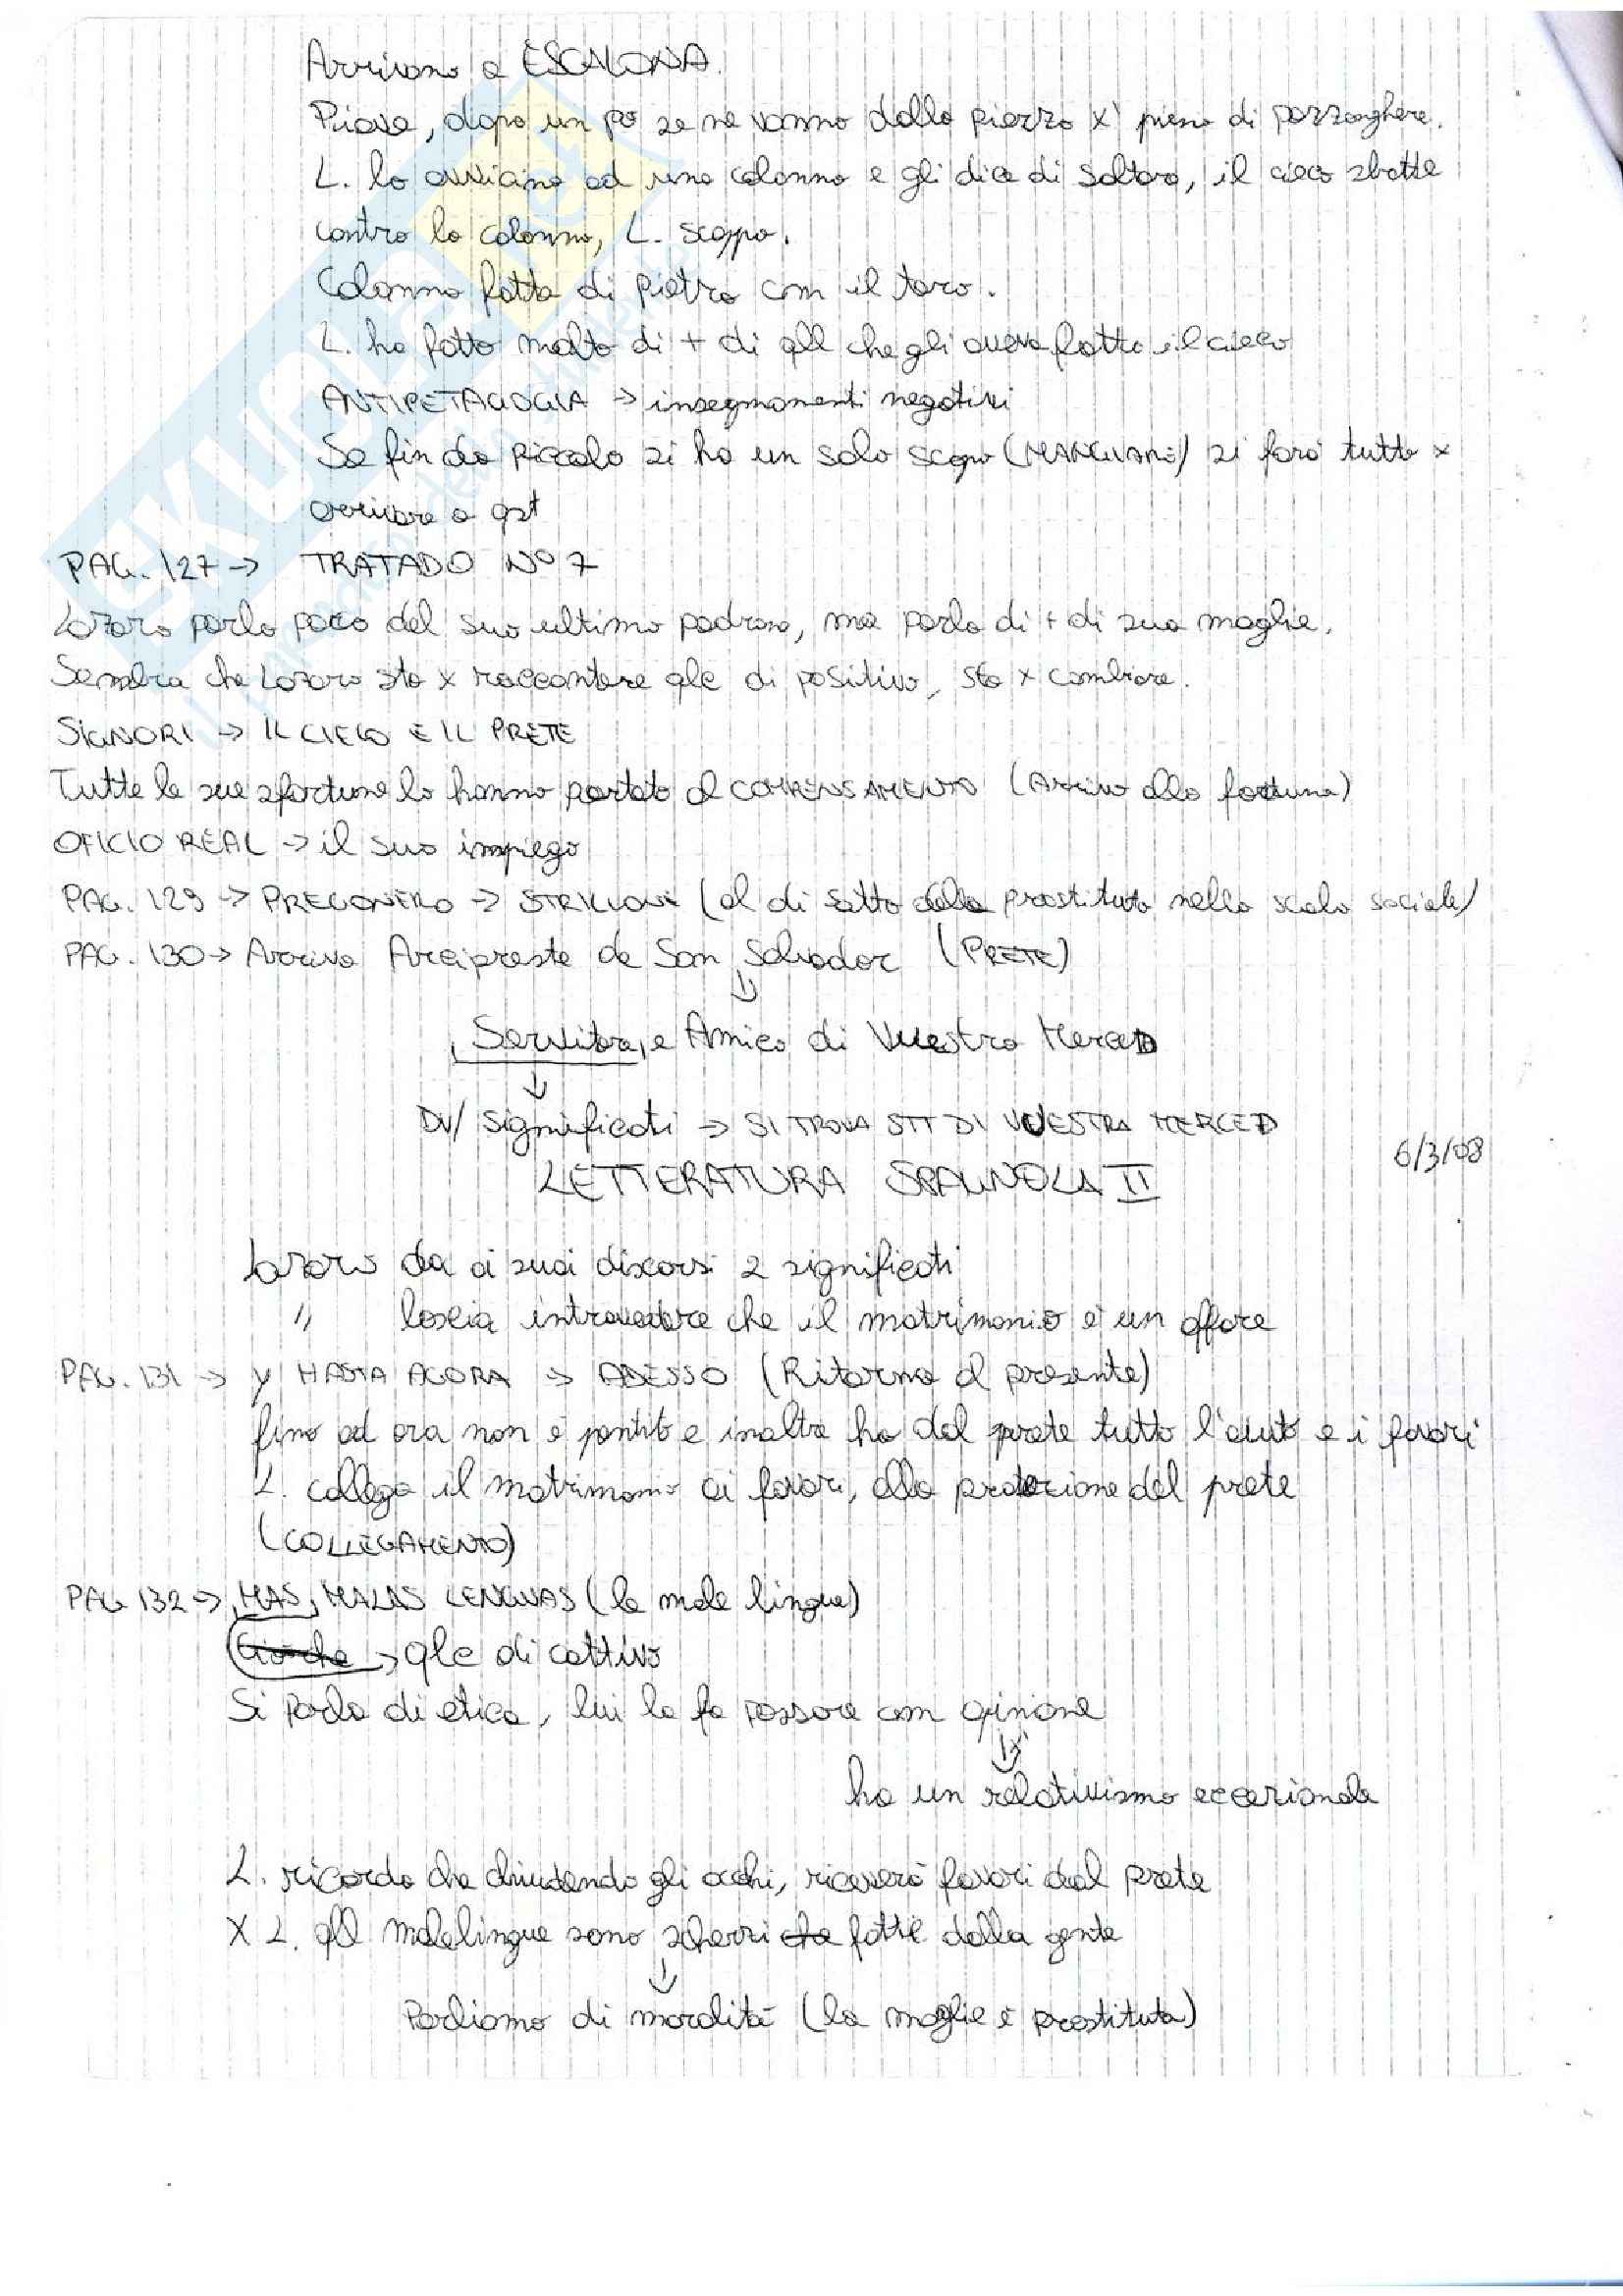 Arrivano a ESCALONA.
Piove, dopo un po' se ne vanno dalla piazza x' piena di pozzanghere.
L. lo avvicina ad una colonna e gli dice di saltare, il cieco sbatte
contro la colonna, L. scappa.
Colonna fatta di pietra con il toro.
L. ha fatto molto di + di qll che gli aveva fatto il cieco
ANTIPETAGOGIA → insegnamenti negativi
Se fin da piccolo si ha un solo scopo (MANGIARE) si farà tutto x
arrivare a qst
PAG. 127 → TRATADO Nº 7
Lazaro parla poco del suo ultimo padrone, ma parla di + di sua moglie.
Sembra che Lazaro sta x raccontare qlc di positivo, sta x cambiare.
SIGNORI → IL CIECO E IL PRETE
Tutte le sue sfortune lo hanno portato al COMPENSAMENTO (Arrivo alla fortuna)
OFICIO REAL → il suo impiego
PAG. 129 → PREGONERO → STRILLONE (al di sotto della prostituta nella scala sociale)
PAG. 130 → Arriva Arcipreste de San Salvador (PRETE)
↓
Servitore e Amico di Vuestra Merced
↓
DV/ significati → SI TROVA STT DI VUESTRA MERCED
6/3/08
LETTERATURA SPAGNOLA II
Lazaro da ai suoi discorsi 2 significati
" lascia intravedere che il matrimonio è un affare
PAG. 131 → Y HASTA AGORA → ADESSO (Ritorno al presente)
fino ad ora non è pentito e inoltre ha dal prete tutto l'aiuto e i favori
L. collega il matrimonio ai favori, alla protezione del prete
(COLLEGAMENTO)
PAG 132 → MAS MALAS LENGUAS (le male lingue)
→ qlc di cattivo
Si parla di etica, lui la fa passare com opinione
↓ x'
ha un relativismo eccezionale
L. ricorda che chiudendo gli occhi, riceverà favori dal prete
X L. qll malelingue sono scherzi che fatti dalla gente
↓
Parliamo di moralità (la moglie è prostituta)
SKUOLA.net